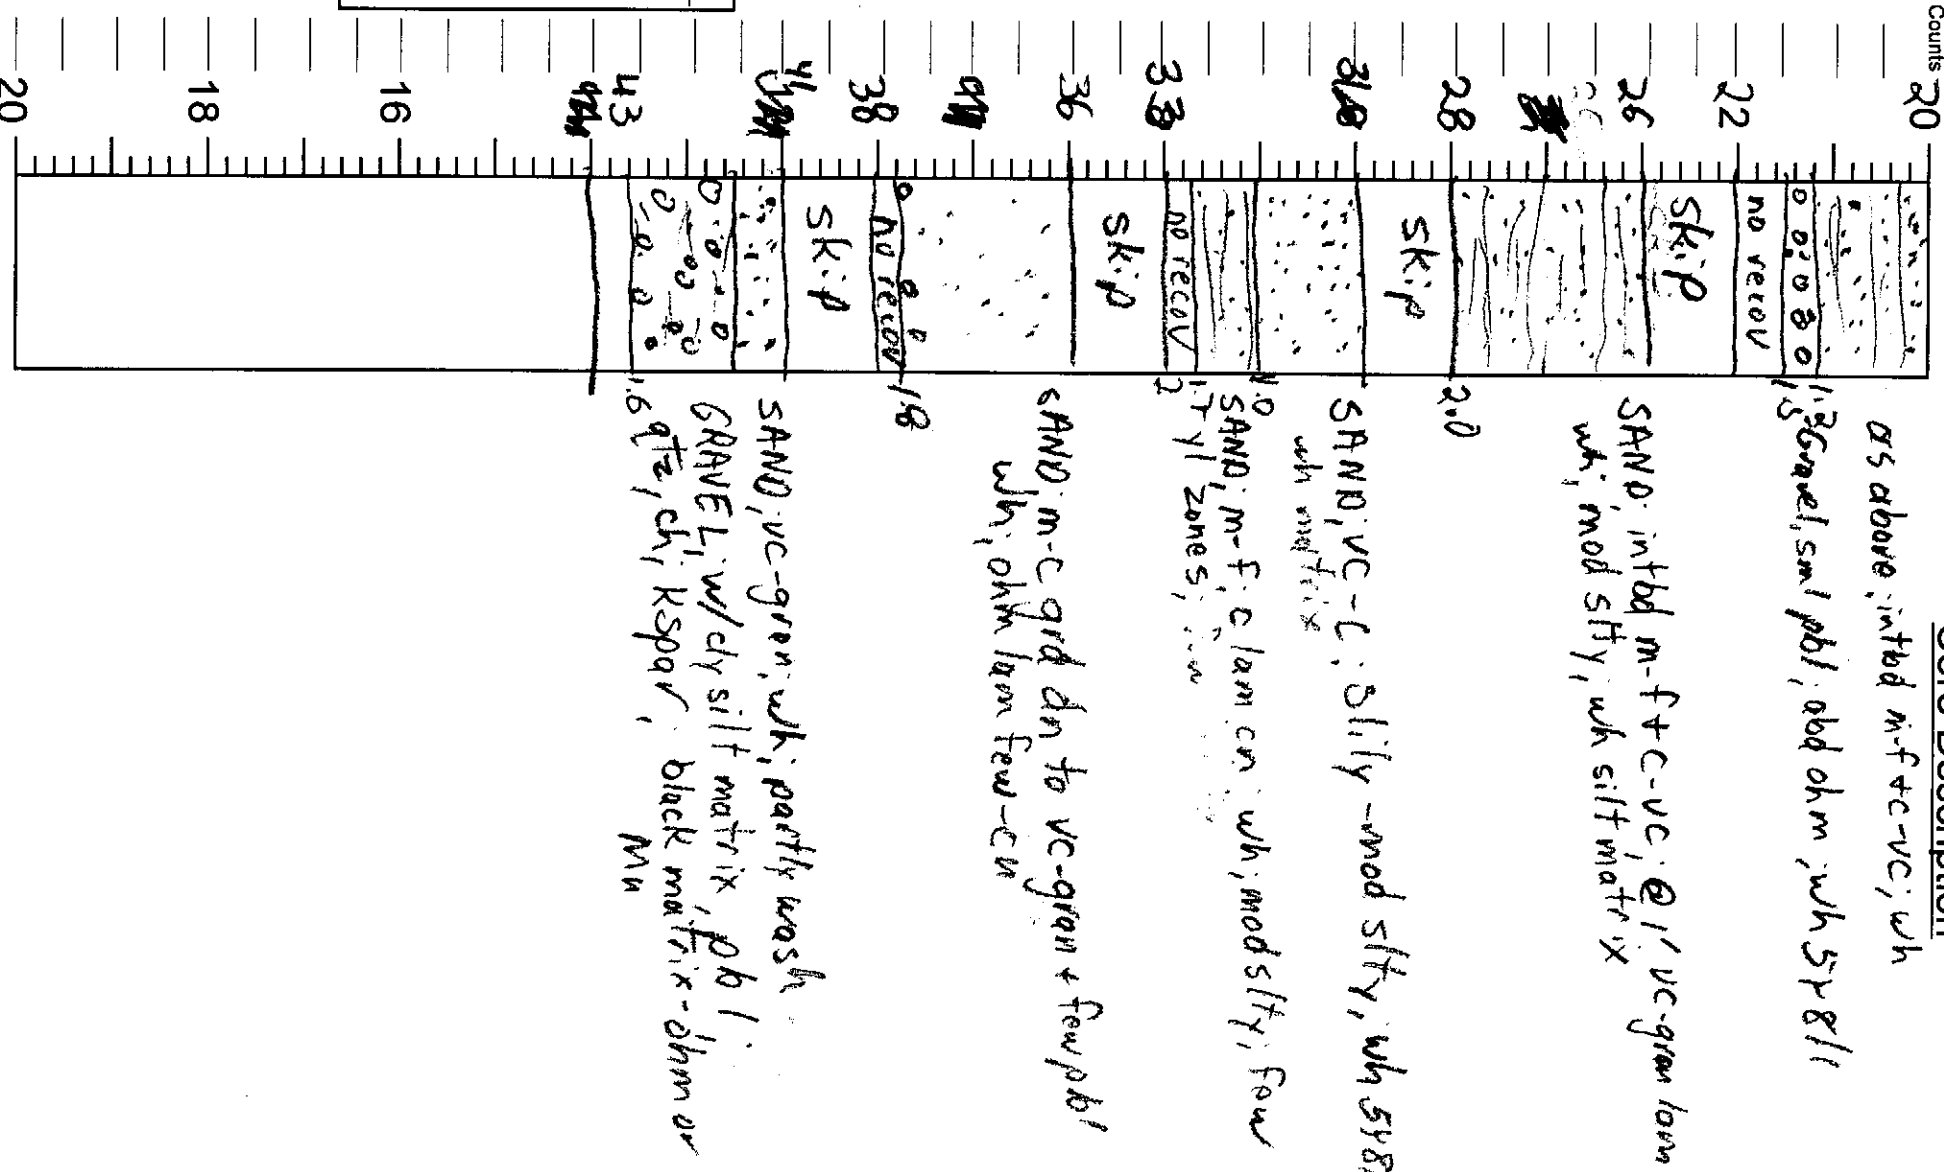 Counts
Core Description
20
as above; intbd m-f + c-vc; wh
1.3 Gravel, sml pbl; abd ohm; wh 5Y8/1
1.5
no recov
22
skip
26
SAND; intbd m-f + c-vc; @1' vc-gran lam
wh; mod slty; wh silt matrix
28
2.0
skip
SAND; vc-c; slily-mod slty, wh 5Y8/
wh matrix
1.0
SAND; m-f; c lam cm; wh; mod slty; few
1.7 yl zones;
no recov
2
33
skip
36
SAND; m-c grd dn to vc-gran + few pbl
wh; ohm lam few-cm
1.8
no recov
38
skip
41
SAND; vc-gran; wh; partly wash
GRAVEL; w/ cly silt matrix, pbl;
qtz, ch, kspar; black matrix-ohm or
Mn
1.6
43
16
18
20